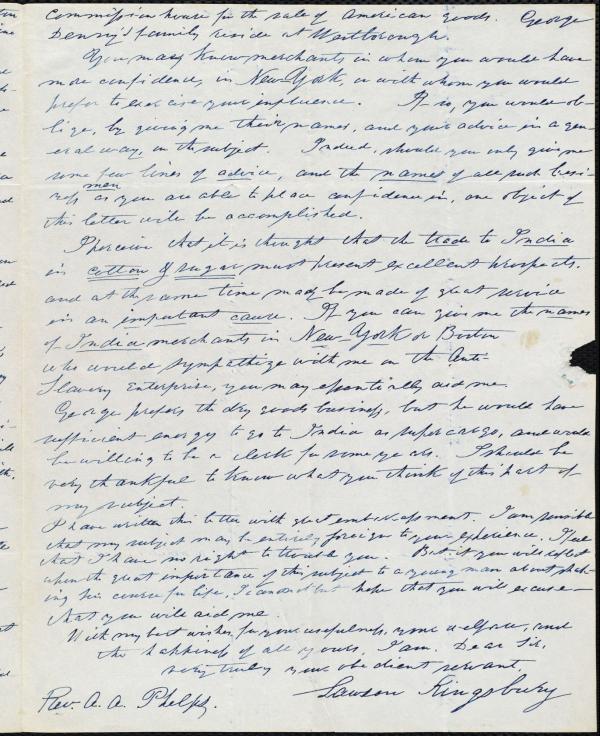 commission house for the sale of American goods. George
Denny's family reside at Westborough.
You may know merchants in whom you would have
more confidence, in New-York, or with whom you would
prefer to exercise your influence. If so, you would ob-
lige, by giving me their names, and your advice in a gen-
eral way, on the subject. Indeed, should you only give me
some few lines of advice, and the names of all such busi-
ness men as you are able to place confidence in, one object of
this letter will be accomplished.
I perceive that it is thought that the trade to India
in cotton & sugar must present excellent prospects.
and at the same time may be made of great service
in an important cause. If you can give me the names
of India merchants in New-York or Boston
who would sympathize with me on the Anti-
Slavery Enterprise, you may essentially aid me.
George prefers the dry goods business, but he would have
sufficient energy to go to India as supercargo, and would
be willing to be a clerk for some years. I should be
very thankful to know what you think of this part of
my subject.
I have written this letter with great embarrassment. I am sensible
that my subject may be entirely foreign to your experience. I feel
that I have no right to trouble you. But if you will reflect
upon the great importance of this subject to a young man about
ing his course for life, I cannot but hope that you will excuse—
that you will aid me.
With my best wishes for your usefulness, your welfare, and
the happiness of all yours, I am, Dear Sir,
very truly your obedient servant,
Lawson Kingsbury
Rev. A. A. Phelps.